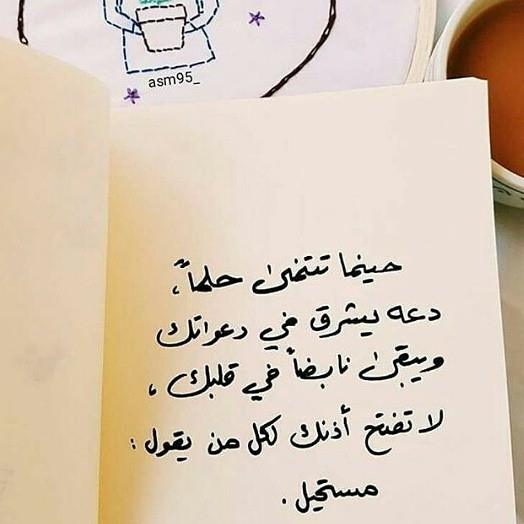 asm95_
حينما تتمنىٰ حلماً،
دعه يشرق في دعواتك
ويبقىٰ نابضاً في قلبك ،
لا تفتح أذنك لكل من يقول :
مستحيل .